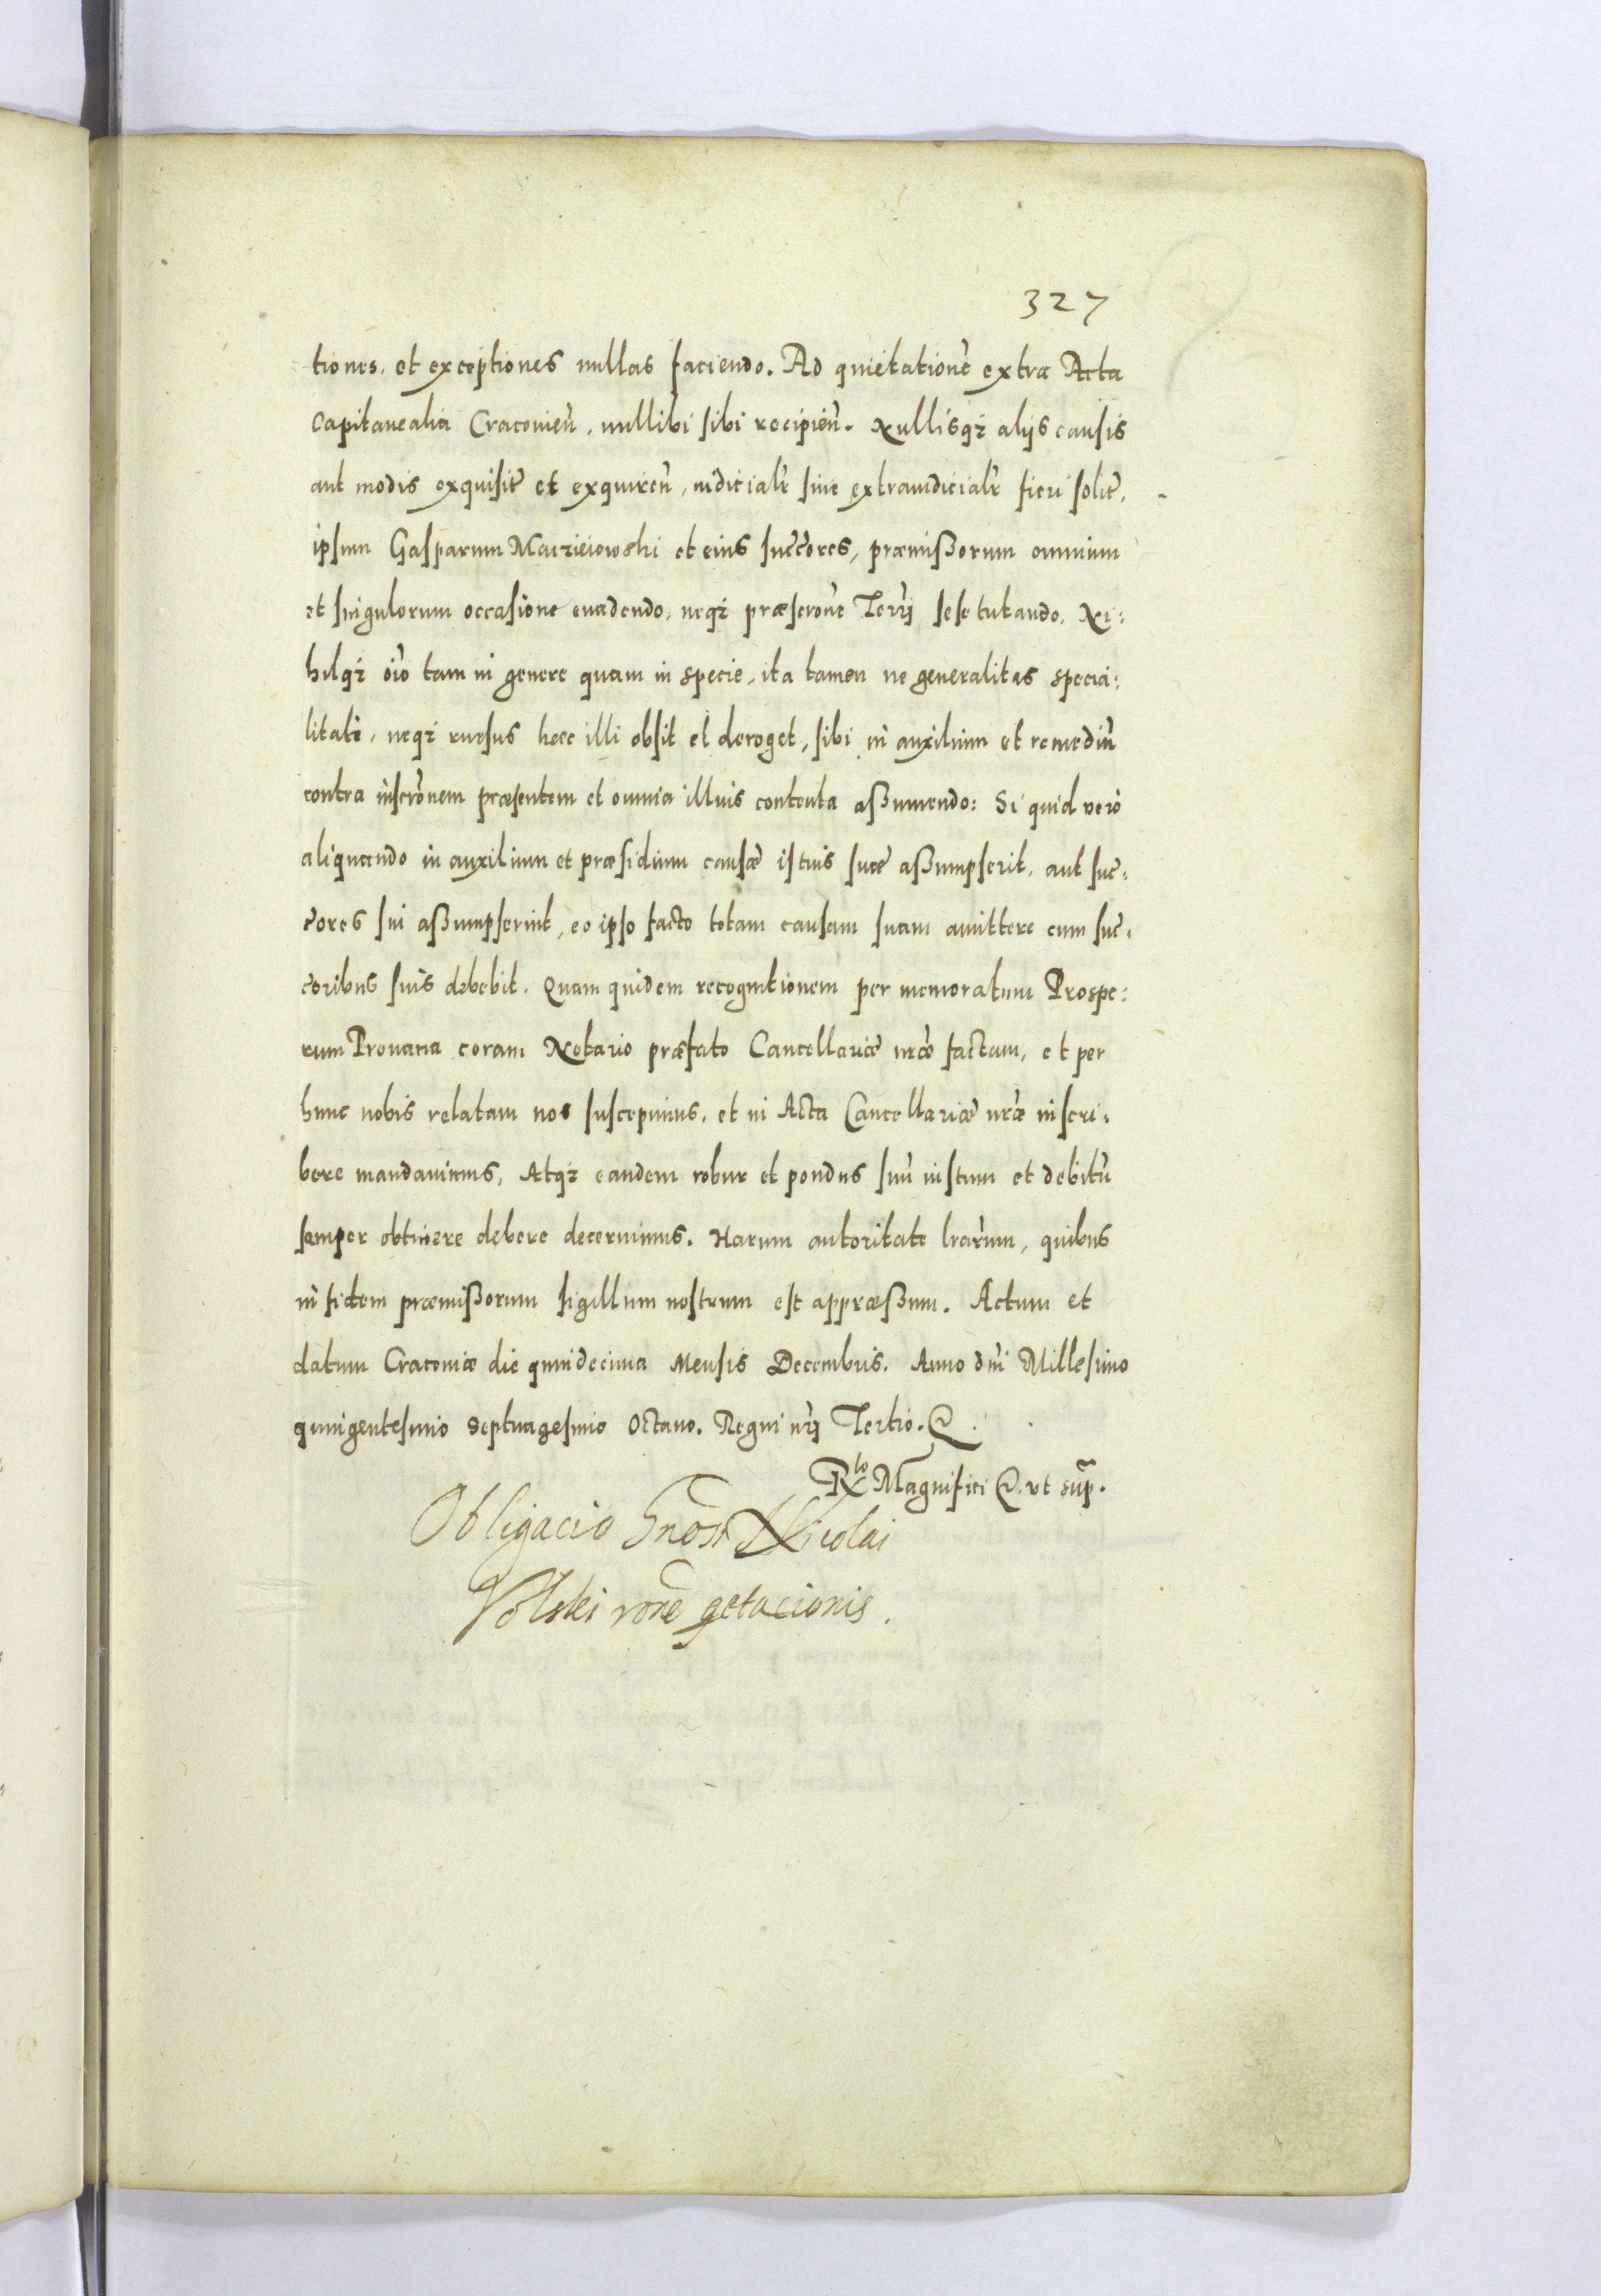 327
tiones, et exceptiones nullas faciendo. Ad quietationē extra Acta
Capitanealia Cracouien̄, nullibi sibi recipien̄. Nullisqȝ alijs causis
aut modis exquisit̄ et exquiren̄, iudicialr̄ siue extraiudicialr̄ fieri solit̄,
ipsum Gasparum Maczieiowski et eius succ̄ores, præmißorum omnium
et singulorum occasione euadendo, neqȝ præscr̄one Terr̄j sese tutando, Ni:
hilqȝ oīo tam in genere quam in specie, ita tamen ne generalitas specia:
litati, neqȝ rursus hæc illi obsit et deroget, sibi in auxilium et remediū
contra inscr̄onem præsentem et omnia illius contenta aßumendo: Si quid vero
aliquando in auxilium et præsidium causæ istius suæ aßumpserit, aut suc̄:
c̄ores sui aßumpserint, eo ipso facto totam causam suam amittere cum suc̄:
c̄oribus suis debebit. Quam quidem recognitionem per memoratum Prospe:
rum Prouana coram Notario præfato Cancellariæ nr̄æ factam, et per
hunc nobis relatam nos suscepimus, et in Acta Cancellariæ nr̄æ inscri:
bere mandauimus, Atqȝ eandem robur et pondus suū iustum et debitū
semper obtinere debere decernimus. Harum autoritate lr̄arum, quibus
in fidem præmißorum sigillum nostrum est appræßum. Actum et
datum Cracouiæ die quindecima Mensis Decembris. Anno dn̄i Millesimo
quingentesimo Septuagesimo Octauo. Regni nr̄j Tertio. &.
R^to Magnifici &. vt sup̄.
Obligacio Gn̄osi Nicolai
Volski rōne qetacionis.